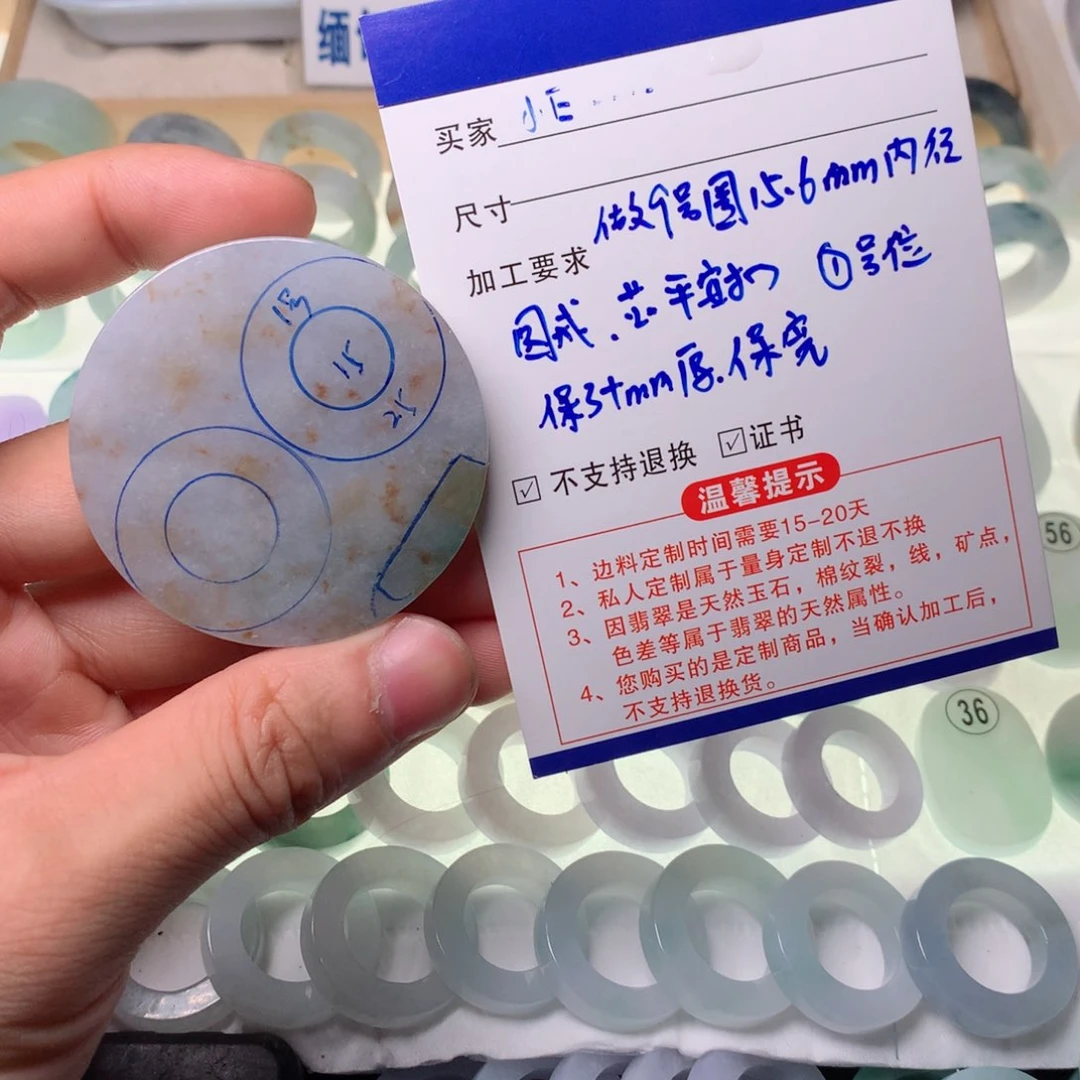 缅
买家 小E
尺寸
做9号圈15.6mm内径
加工要求
圆戒.芯平宜扣 ①号位
保3+mm厚.保完
☑ 不支持退换 ☑证书
温馨提示
1、边料定制时间需要15-20天
2、私人定制属于量身定制不退不换
3、因翡翠是天然玉石，棉纹裂，线，矿点，
色差等属于翡翠的天然属性。
4、您购买的是定制商品，当确认加工后，
不支持退换货。
1号
15
25
56
36